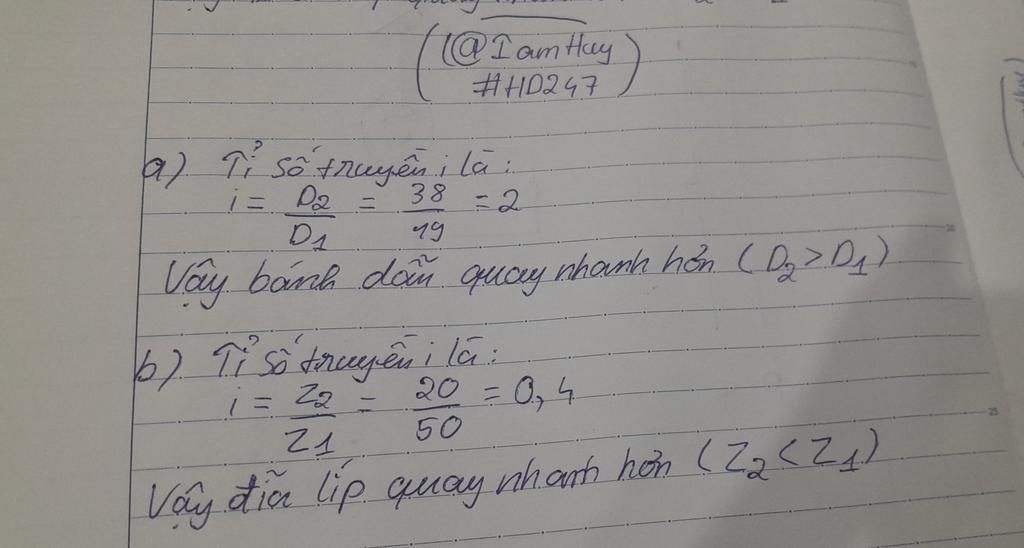 (@IamHuy
#HD247)
a) Tỉ số truyền i là:
i = D2/D1 = 38/19 = 2
Vậy bánh dẫn quay nhanh hơn (D2 > D1)
b) Tỉ số truyền i là:
i = Z2/Z1 = 20/50 = 0,4
Vậy đĩa líp quay nhanh hơn (Z2 < Z1)